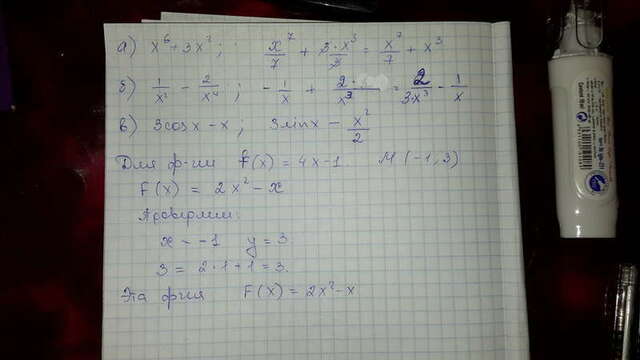 а) x⁶+3x²; x⁷/7 + 3·x³/3 = x⁷/7 + x³
б) 1/x² - 2/x⁴; -1/x + 2·/x³ = 2/3·x³ - 1/x
в) 3cosx-x; 3sinx - x²/2
Для ф-ии f(x) = 4x-1 M(-1,3)
F(x) = 2x²-x
Проверяем:
x = -1 y = 3
3 = 2·1+1 = 3.
Эта ф-ия F(x) = 2x²-x